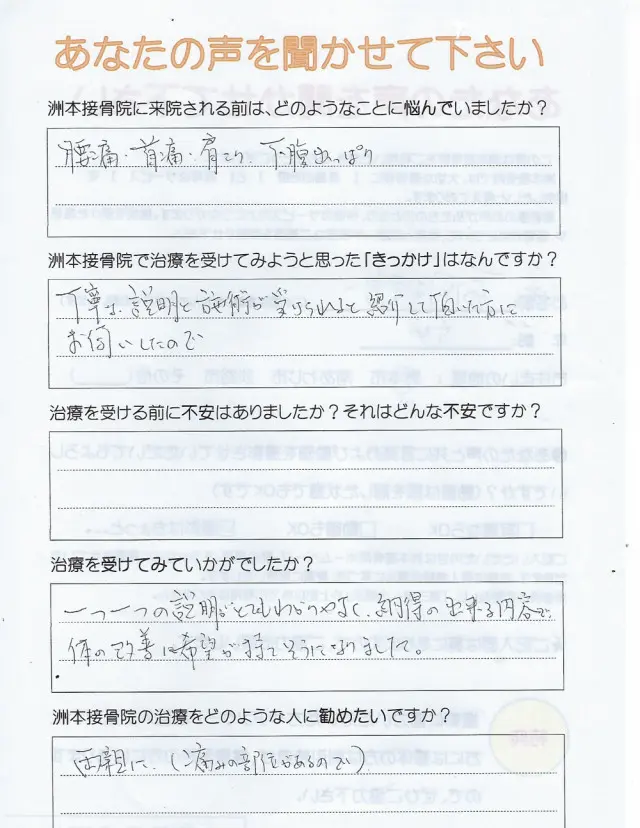 あなたの声を聞かせて下さい
洲本接骨院に来院される前は、どのようなことに悩んでいましたか？
腰痛・首痛・肩こり、下腹出っぱり
洲本接骨院で治療を受けてみようと思った「きっかけ」はなんですか？
丁寧な説明と施術が受けられると紹介して頂いた方に
お伺いしたので
治療を受ける前に不安はありましたか？それはどんな不安ですか？
治療を受けてみていかがでしたか？
一つ一つの説明がとてもわかりやすく、納得の出来る内容で、
体の改善に希望が持てそうになりました。
洲本接骨院の治療をどのような人に勧めたいですか？
両親に、（痛みの部位があるので）